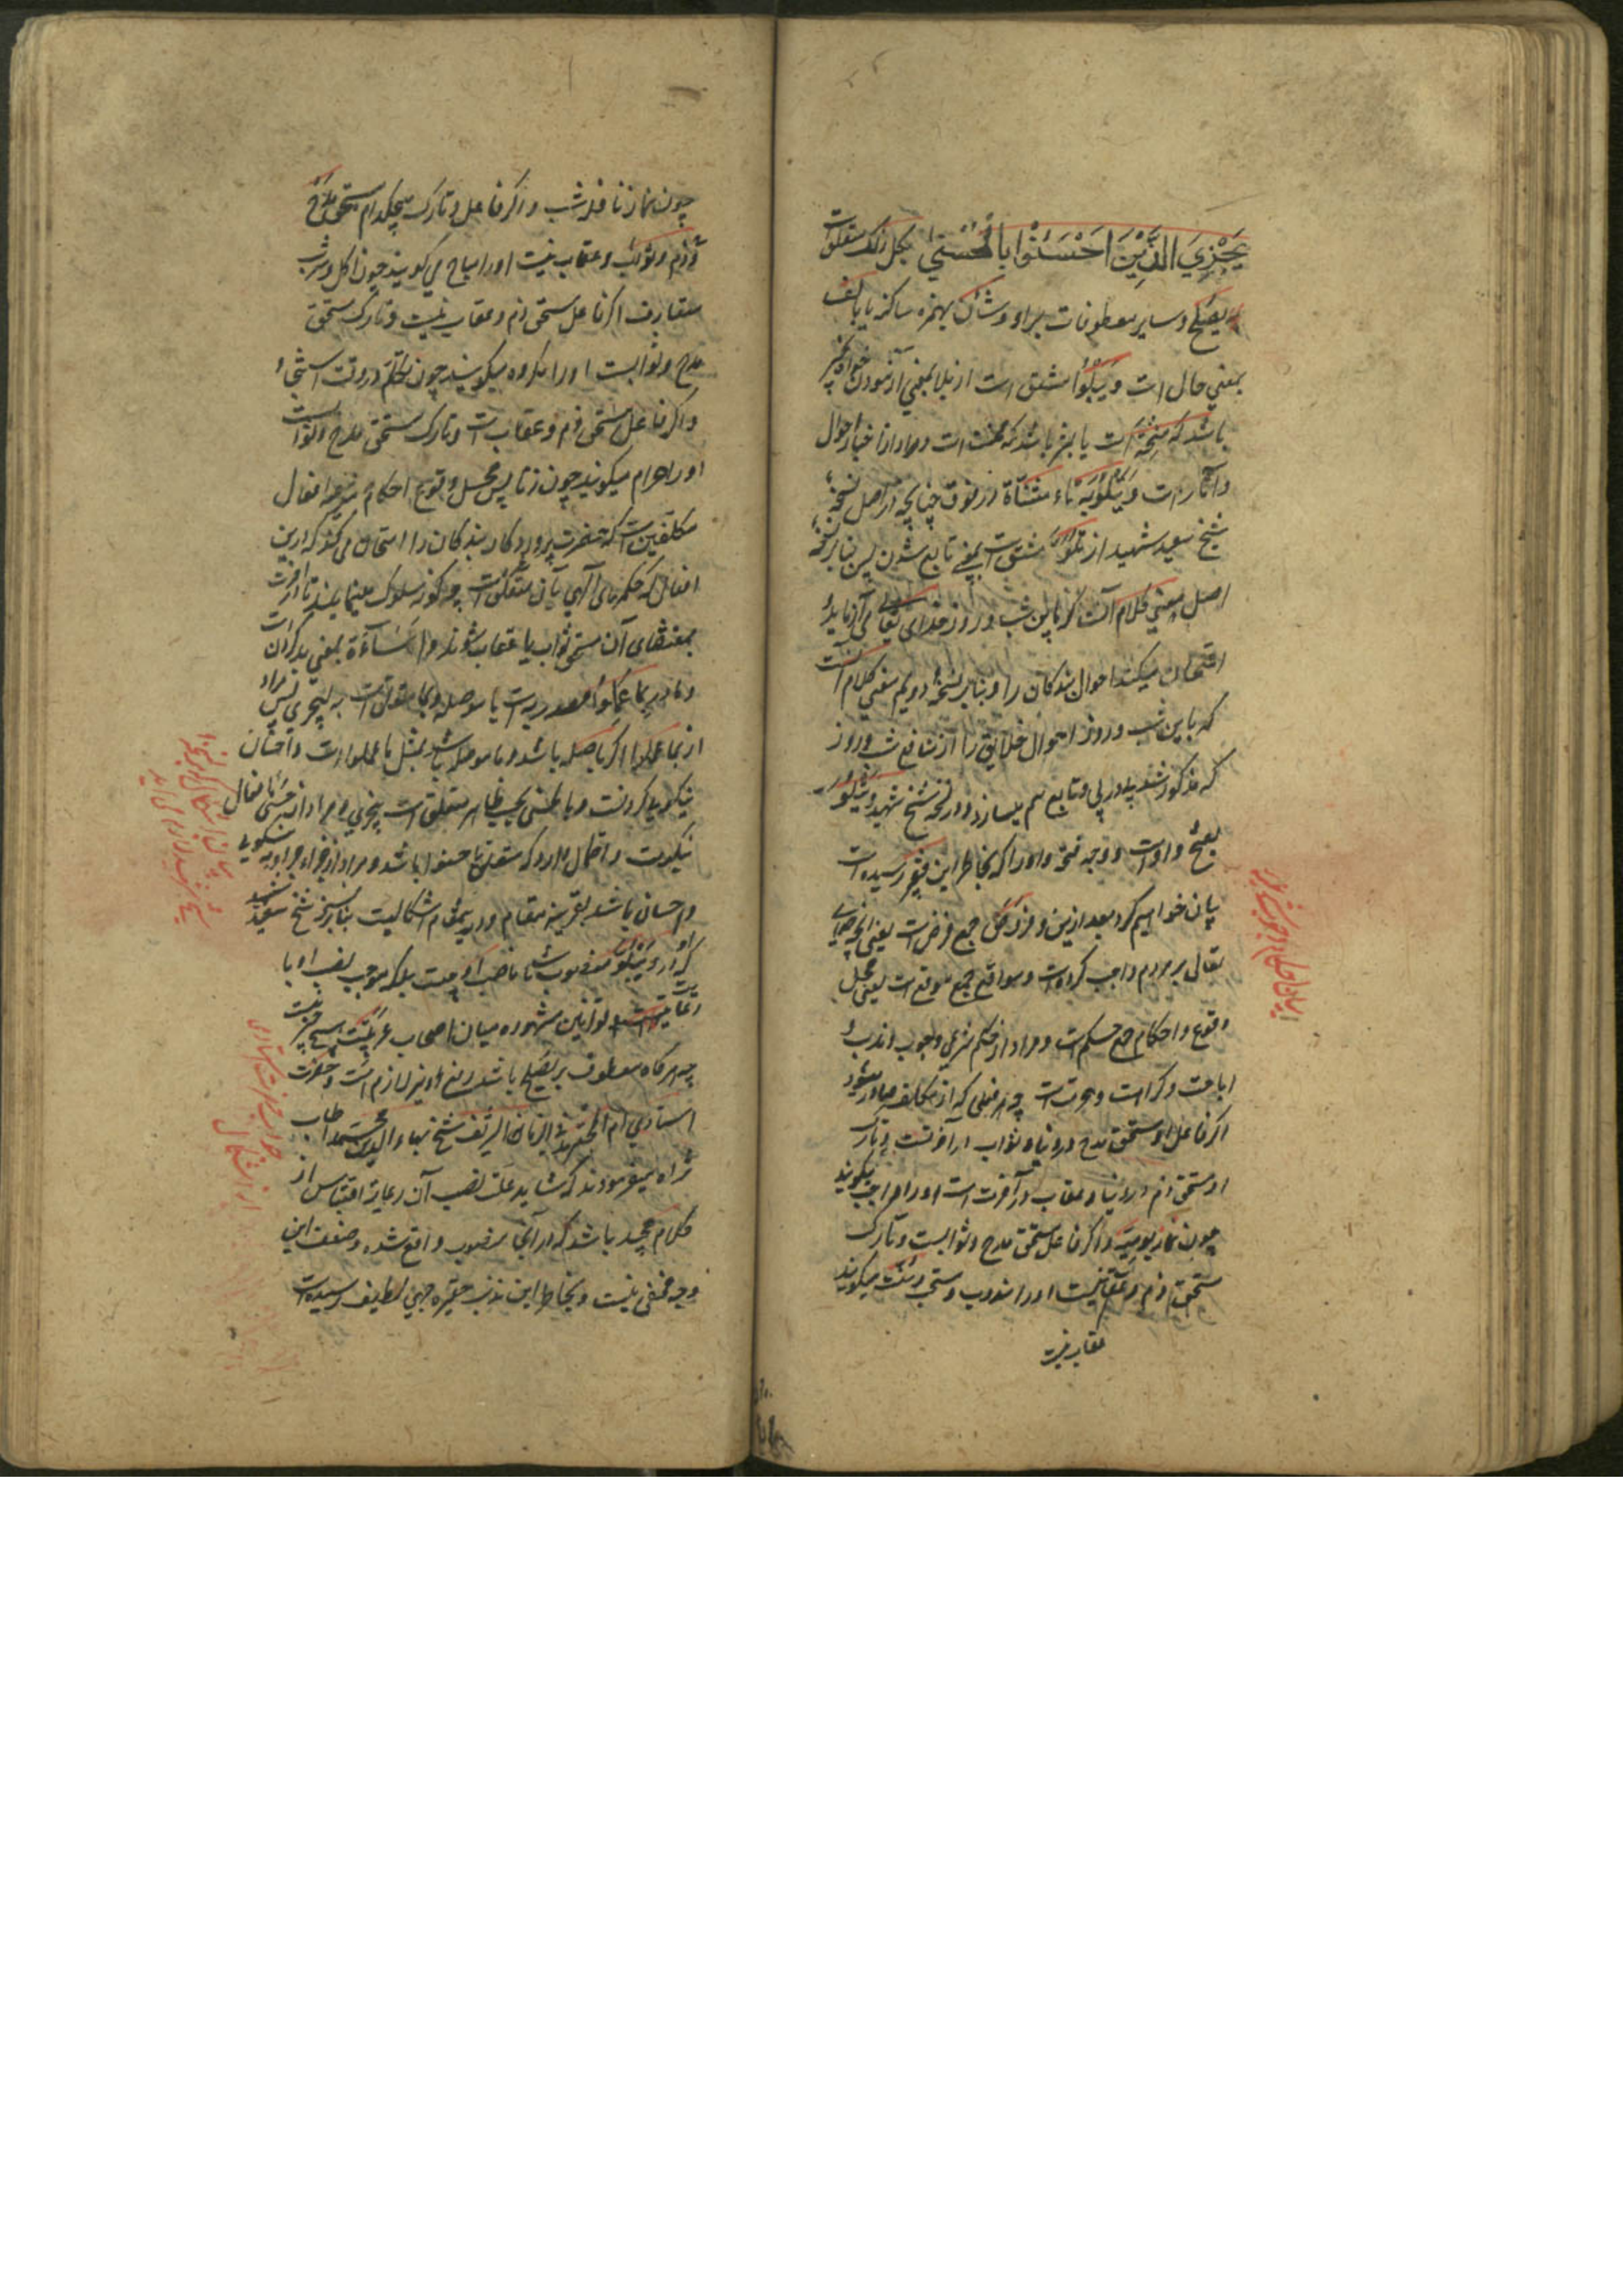 يَجْزِيَ الَّذِيْنَ اَحْسَنُوْا بِالْحُسْنىٰ بكل ذلك متعلق است
بيصلح و ساير معطوفات بر او و شأن بهمزه ساكنه يا بالف
بمعني حال است و يَبْلُوْا مشتق است از بلا بمعني آزمودن خواه بخير
باشد كه منحة است يا بشر باشد كه محنت است و مراد از اخبار احوال
و آثار است و يَتْلُوْ بتاء مثنّاة در فوق چنانچه در اصل نسخهٔ
شيخ سعيد شهيد از تلو مشتق است بمعني تابع شدن پس بنا بر نسخهٔ
اصل معني كلام آنست كه باين شب و روز خداى تعالى مي‌آزمايد و
امتحان ميكند احوال بندكان را و بنا بر نسخهٔ دويم معني كلام آنست
كه باين شب و روز احوال خلايق را از شب و روز
كه مذكور شد پي در پي و تابع هم ميسازد و در نسخهٔ شيخ شهيد و يتلو
بفتح واو است و وجه فتح واو را كه بخاطر اين فقير رسيده است
بيان خواهيم كرد بعد ازين و فروض جمع فرض است يعني آنچه خداى
تعالى بر مردم واجب كرده است و مواقع جمع موقع است يعني محل
وقوع و احكام جمع حكم است و مراد از حكم شرعي وجوب و ندب و
اباحت و كراهت و حرمت است چه هر فعلى كه از مكلف صادر ميشود
اكر فاعل او مستحق مدح در دنيا و ثواب در آخرتست و تارك
او مستحق ذم در دنيا و عقاب در آخرت است او را واجب ميكويند
چون نماز يوميه و اكر فاعل مستحق مدح و ثوابست و تارك
مستحق ذم و عقاب نيست او را مندوب و مستحب و سنت ميكويند
عقاب نيست
چون نماز نافلهٔ شب و اكر فاعل و تارك هيچكدام مستحق مدح
و ذم و ثواب و عقاب نيست او را مباح مي كويند چون اكل و شرب
متعارف اكر فاعل مستحق ذم و عقاب نيست و تارك مستحق
مدح و ثوابست او را مكروه ميكويند چون تكلم در وقت استنجاء
و اكر فاعل مستحق ذم و عقاب است و تارك مستحق مدح و ثواب است
او را حرام ميكويند چون زنا پس محل وقوع احكام شرعيه افعال
مكلفين است كه حضرت پروردكار بندكان را امتحان مي كند كه درين
افعال كه حكمهاى الهي بآن متعلق است چه كونه سلوك مينمايند تا در آخرت
بمقتضاى آن مستحق ثواب يا عقاب شوند و اِسَآءَة بمعني بد كردن است
و ما در بِمَا عَمِلُوا مصدريه است يا موصله و بما متعلق است به ليجزي پس مراد
از بما عملوا اكر ما صله باشد و ما موصله باشد بمثل ما عملوا است و احسان
نيكويى كردنست و بالحسنى بحسب ظاهر متعلق است بيجزي و مراد از حسنى افعال
نيكوست و احتمال دارد كه متعلق باحسنوا باشد و مراد از جزاء جزاء به نيكويى
و احسان باشد بقرينهٔ مقام و در يمقام اشكاليست بنا بر نسخهٔ شيخ سعيد شهيد
كه در او وَيَتْلُوَ منصوب است تا ناصب او چيست بلكه موجب نصب او با
رعايت قوانين مشهوره ميان اصحاب عربيّت هيچ چيز نيست
چه هر كاه معطوف بر يُصلح باشد رفع او نيز لازم است و حضرت
استادي ام المجتهد الزمانى شيخ بهاء الدين محمد طاب
ثراه ميفرمودند كه شايد علت نصب آن رعايت اقتباس از
كلام مجيد باشد كه در آنجا منصوب واقع شده و ضعف اين
وجه مخفى نيست و بخاطر اين مذنب حقير وجهي لطيف رسيده است